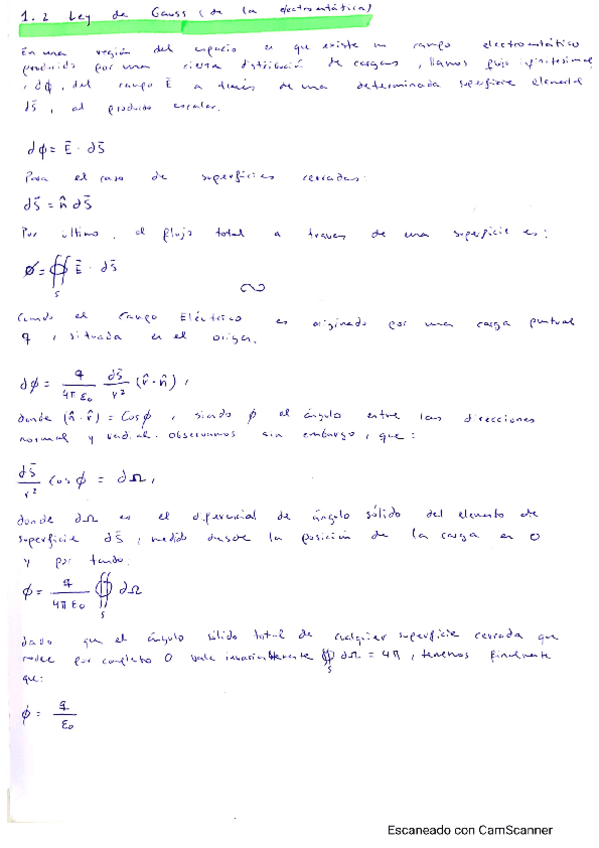 1.2 Ley de Gauss (de la electrostática)
En una región del espacio en que existe un campo electrostático
producido por una cierta distribución de cargas, llamamos flujo infinitesimal
, dϕ, del campo Ē a través de una determinada superficie elemental
dS̄, al producto escalar.
dϕ = Ē · dS̄
Para el caso de superficies cerradas:
dS̄ = n̂ dS̄
Por último, el flujo total a traves de una superficie es:
ϕ = ∯_S Ē · dS̄
Cuando el campo Eléctrico es originado por una carga puntual
q, situada en el origen.
dϕ = q/(4π ε₀) dS̄/r² (r̂ · n̂),
donde (n̂ · r̂) = Cos ϕ, siendo ϕ el ángulo entre las direcciones
normal y radial. observamos sin embargo, que:
dS̄/r² Cos ϕ = dΩ,
donde dΩ es el diferencial de ángulo sólido del elemento de
superficie dS̄, medido desde la posición de la carga en O
y por tanto:
ϕ = q/(4π ε₀) ∯_S dΩ
dado que el ángulo sólido total de cualquier superficie cerrada que
rodee por completo O vale invariablemente ∯_S dΩ = 4π, tenemos finalmente
que:
ϕ = q/ε₀
Escaneado con CamScanner